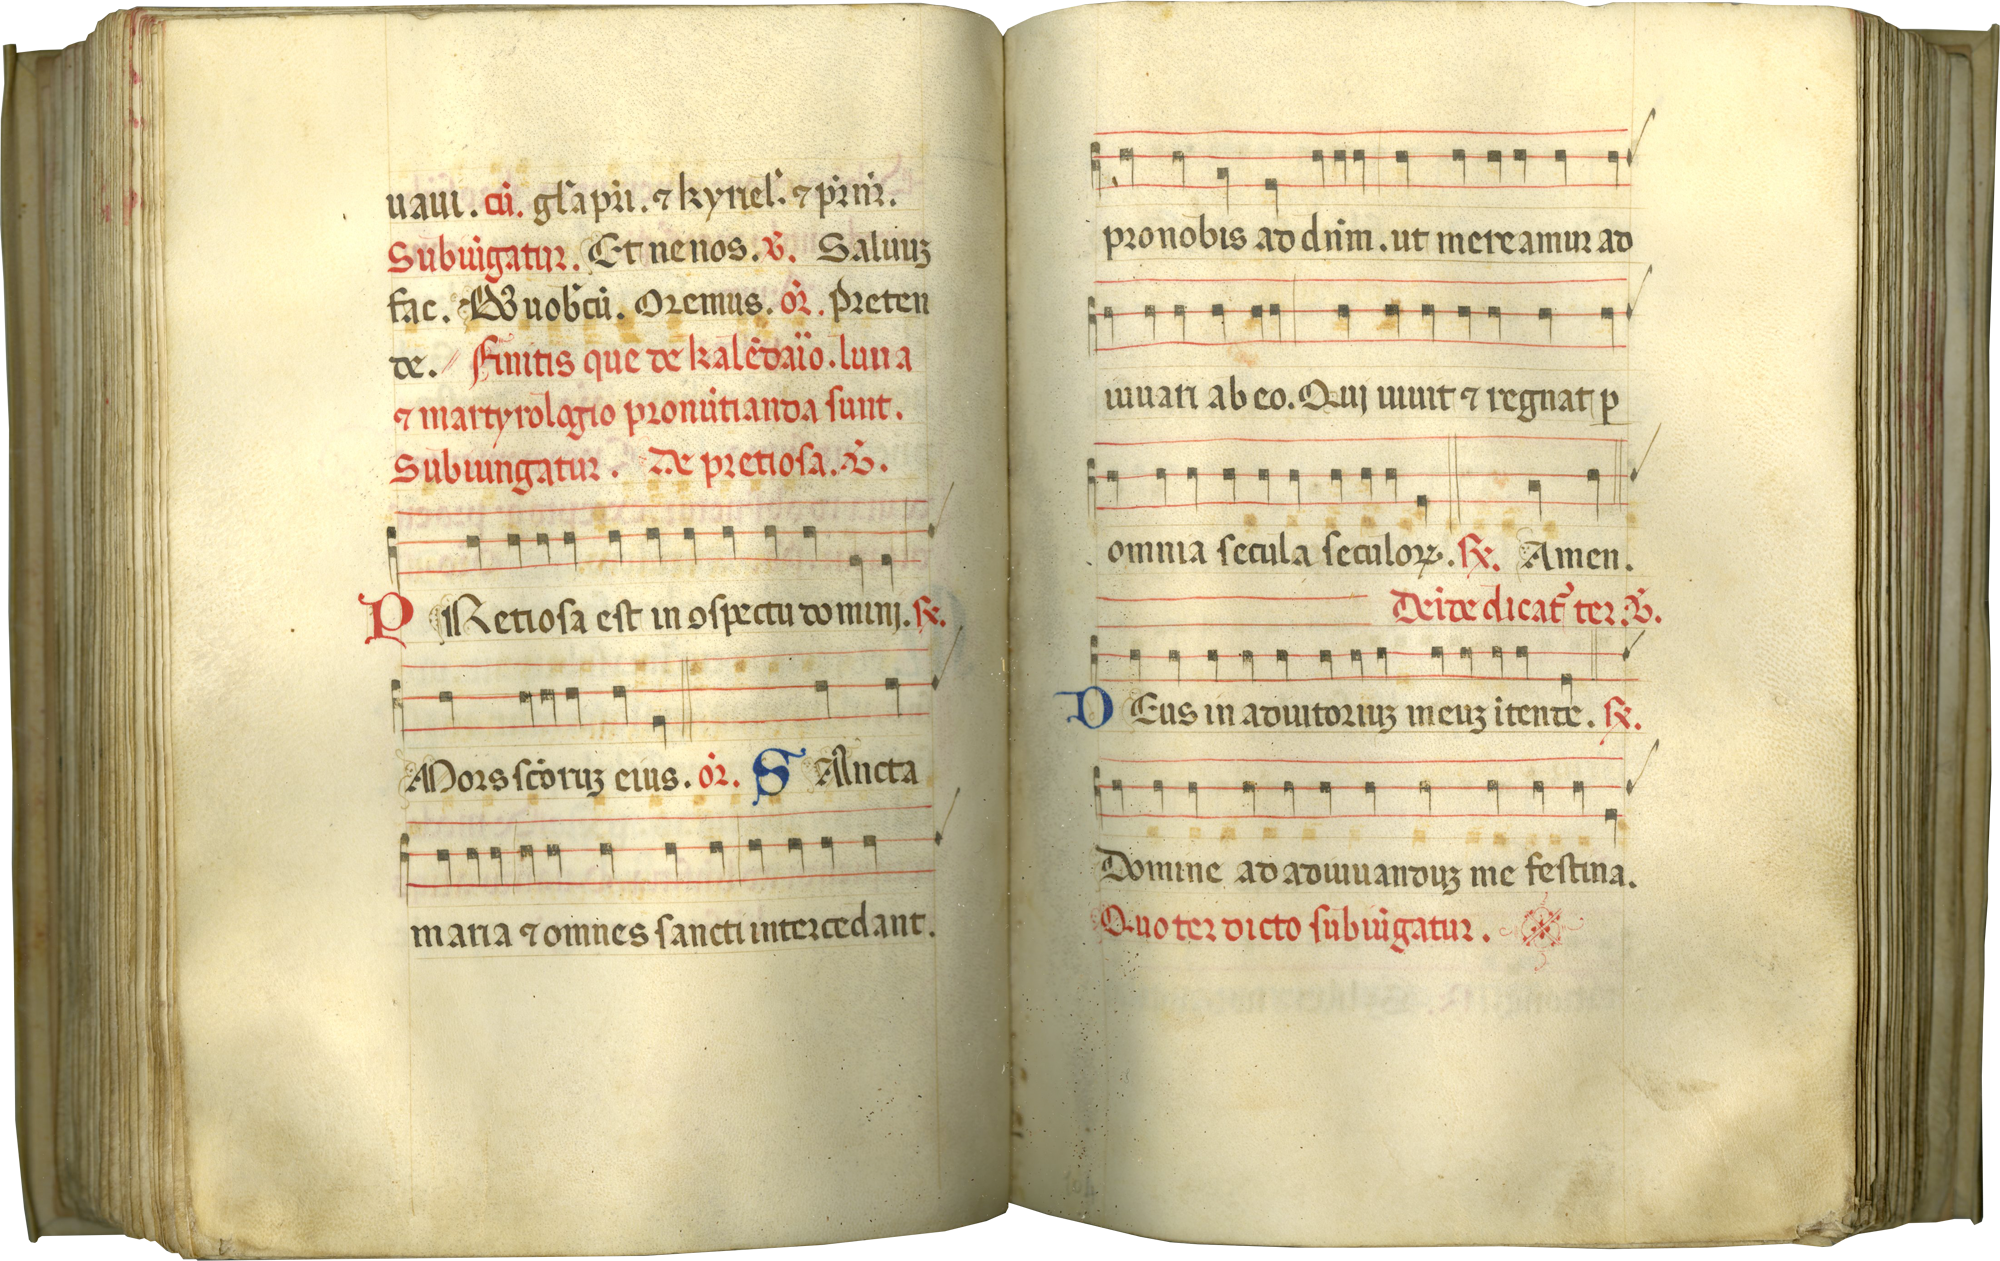 uaui. cū. gl̄a pr̄i. ⁊ kyriel̄. ⁊ pr̄ nr̄.
Subiūgatur. Et ne nos. v̄. Saluuꝫ
fac. uob̄cū. Oremus. or̄. Preten
de. Finitis que de kalēdaīo. luna
⁊ martyrologio pronūtianda sunt.
Subiungatur. De pretiosa. v̄.
PRetiosa est in ɔspectu domini. ℟.
Mors sc̄oruꝫ eius. or̄. SAncta
maria ⁊ omnes sancti intercedant.
pro nobis ad dn̄m. ut mereamur ad
iuuari ab eo. Qui uiuit ⁊ regnat ꝑ
omnia secula seculoꝝ. ℟. Amen.
Deīde dicat̄ ter. v̄.
DEus in adiutoriuꝫ meuꝫ ītende. ℟.
Domine ad adiuuanduꝫ me festina.
Quo ter dicto subiūgatur.